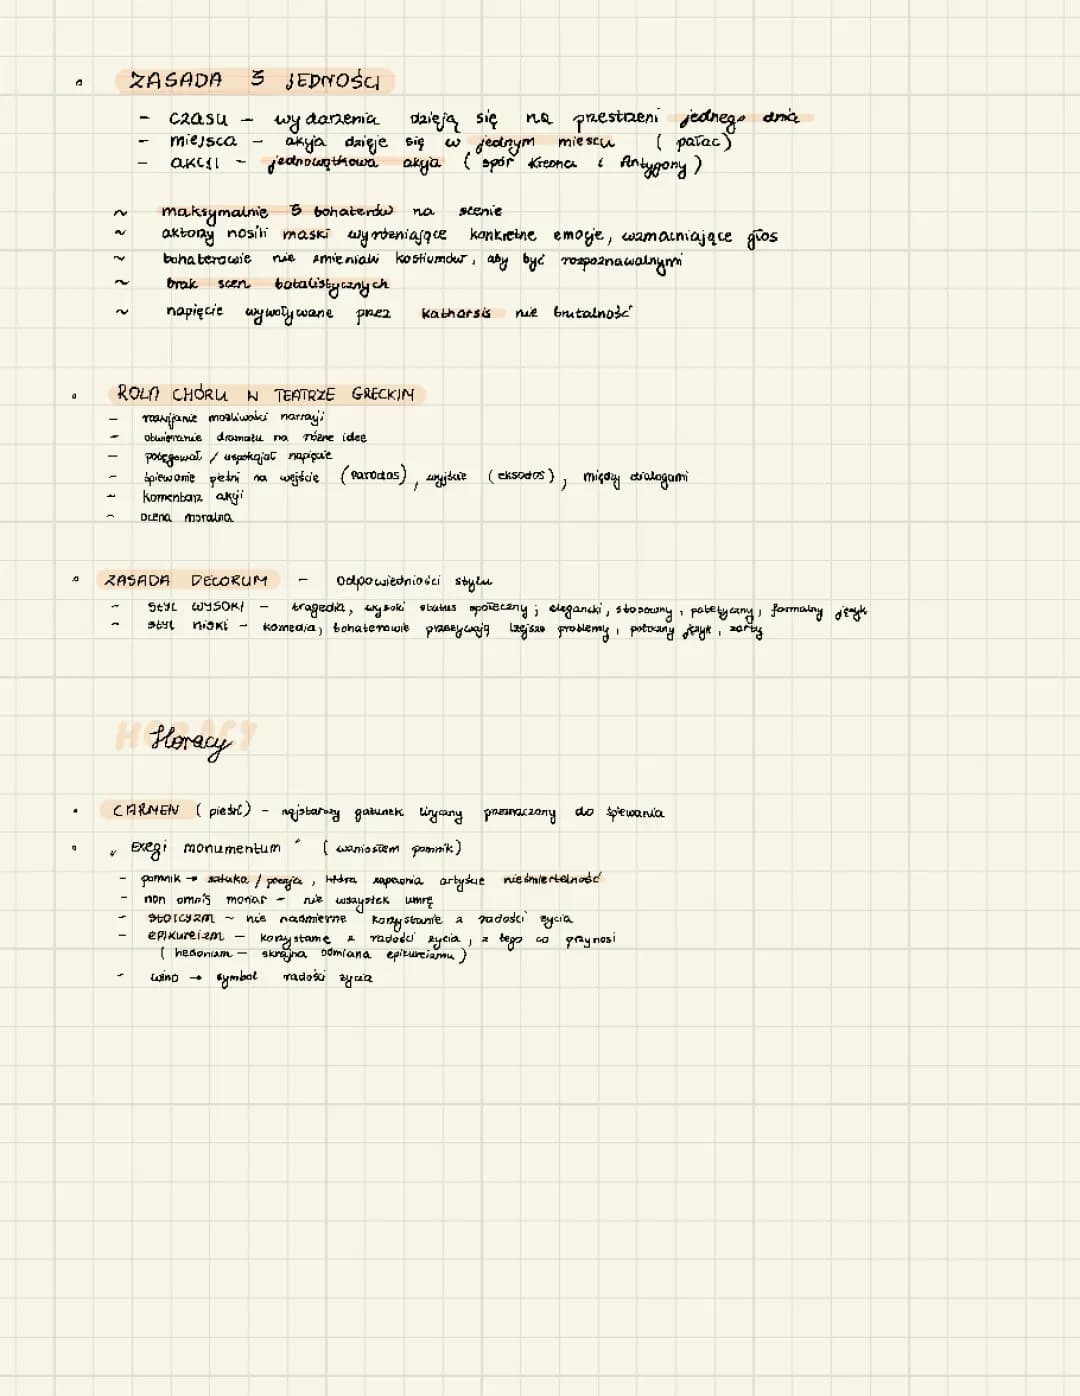 ZASADA 3 JEDNOŚCI
- czasu - wydarzenia dzieją się na przestrzeni jednego dnia
- miejsca - akcja dzieje się w jednym miescu (pałac)
- akcji - jednowątkowa akcja (spór Kreona i Antygony)
~ maksymalnie 3 bohaterów na scenie
~ aktorzy nosili maski wyróżniające konkretne emocje, wzmacniające głos
~ bohaterowie nie zmieniali kostiumów, aby być rozpoznawalnymi
~ brak scen batalistycznych
~ napięcie wywoływane przez katharsis nie brutalność
ROLA CHÓRU W TEATRZE GRECKIM
- rozwijanie możliwości narracji
- otwieranie dramatu na różne idee
- potęgował / uspokajał napięcie
- śpiewanie pieśni na wejście (parodos), wyjście (eksodos), między dialogami
- komentarz akcji
- ocena moralna
ZASADA DECORUM - odpowiedniości stylu
- STYL WYSOKI - tragedia, wysoki status społeczny; elegancki, stosowny, patetyczny, formalny język
- styl niski - komedia, bohaterowie przeżywają lżejsze problemy, potoczny język, żarty
HORACY
Horacy
CARMEN (pieśń) - najstarszy gatunek liryczny przeznaczony do śpiewania
„Exegi monumentum" (wzniosłem pomnik)
- pomnik → sztuka / poezja, która zapewnia artyście nieśmiertelność
- non omnis moriar - nie wszystek umrę
- stoicyzm - nie nadmierne korzystanie z radości życia
- epikureizm - korzystanie z radości życia, z tego co przynosi
(hedonizm - skrajna odmiana epikureizmu)
- wino → symbol radości życia